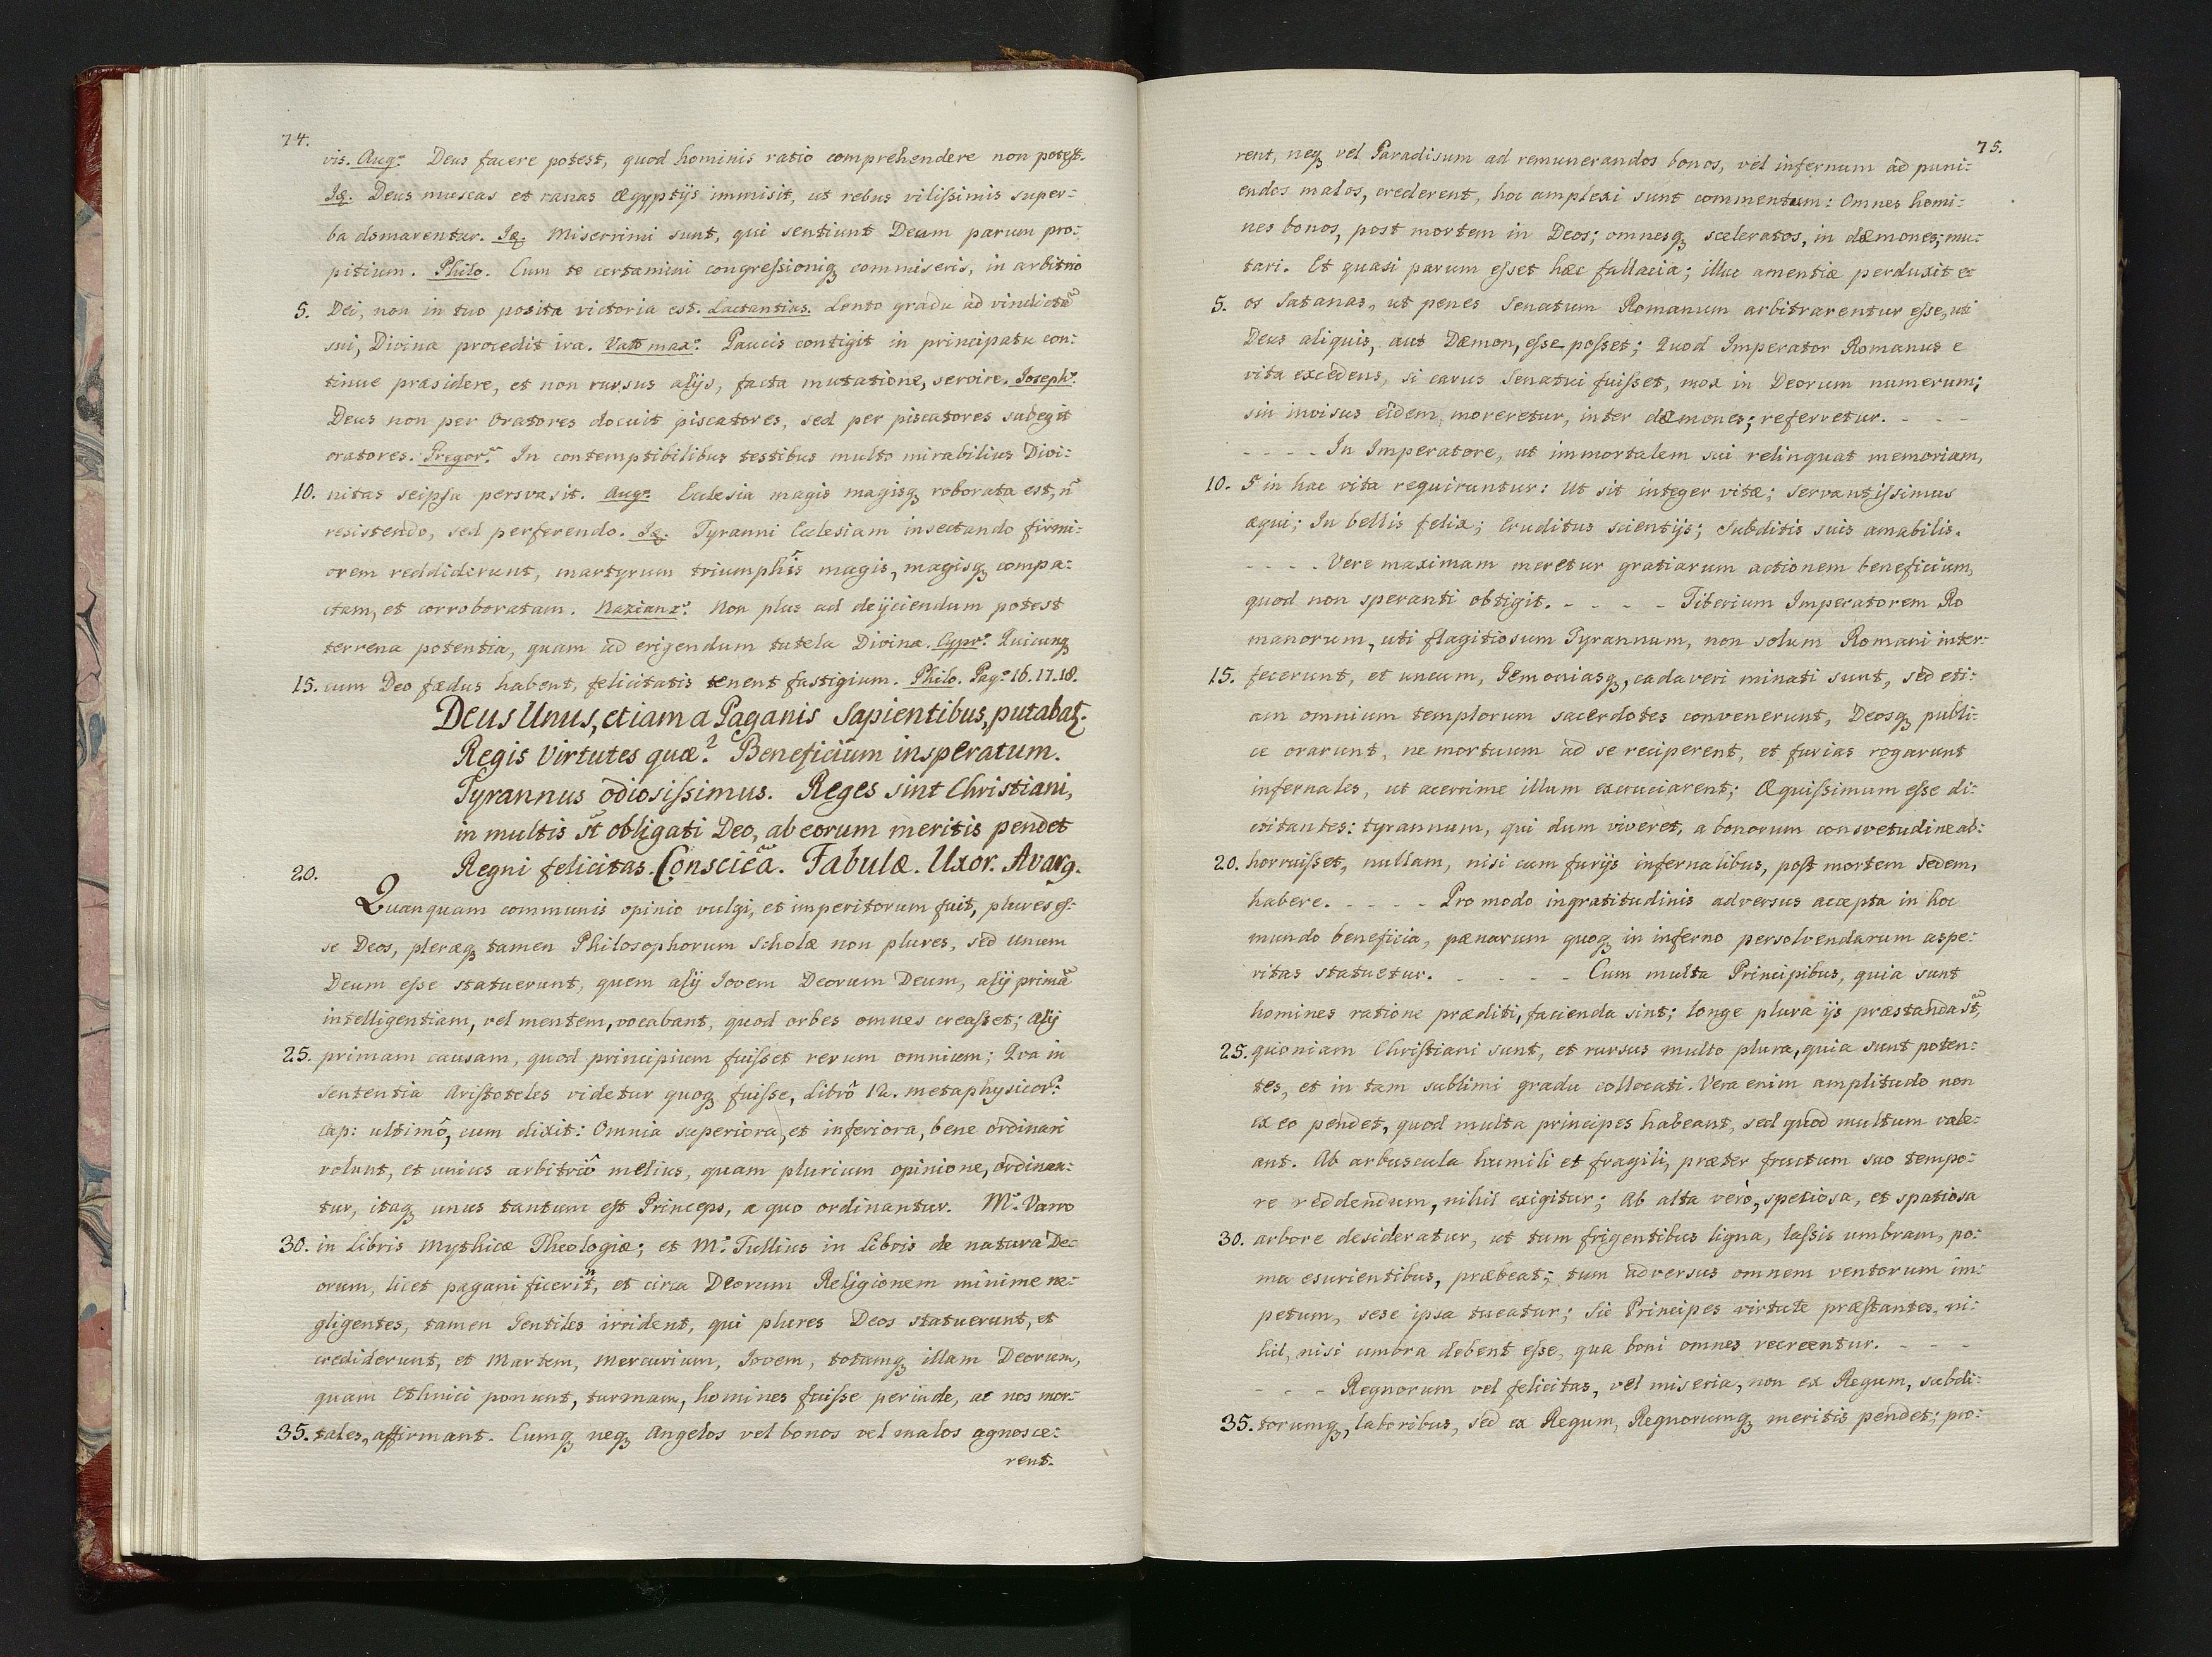 74.
vis. Aug.ˢ Deus facere potest, quod hominis ratio comprehendere non potest.
Iđ. Deus muscas et ranas Ægyptijs immisit, ut rebus vilissimis super:
ba domarentur. Iđ. Miserrimi sunt, qui sentiunt Deum parum pro:
pitium. Philo. Cum te certamini congressioniq̨ commiseris, in arbitrio
5. Dei, non in tuo posita victoria est. Lactantius. Lento gradu ad vindictã
sui, Divina procedit ira. Val: max.ˢ Paucis contigit in principatu con:
tinue præsidere, et non rursus alijs, facta mutatione, servire. Joseph.ˢ
Deus non per Oratores docuit piscatores, sed per piscatores subegit
oratores. Gregor.ˢ In contemptibilibus testibus multo mirabilius Divi:
10. nitas seipsa persvasit. Aug.ˢ Ecclesia magis magisq̨ roborata est, ñ
resistendo, sed perferendo. Iđ. Tyranni Ecclesiam insectando firmi:
orem reddiderunt, martyrum triumphîs magis, magisq̨ compa:
ctam, et corroboratam. Nazianz.ˢ Non plus ad dejiciendum potest
terrena potentia, quam ad erigendum tutela Divina. Cypr.ˢ Quicunq̨
15. cum Deo fædus habent, felicitatis tenent fastigium. Philo. Pag.ᵃ 16. 17. 18.
Deus Unus, etiam a Paganis Sapientibus, putabat̨.
Regis Virtutes quæ? Beneficium insperatum.
Tyrannus odiosissimus. Reges sint Christiani,
in multis st̃ obligati Deo, ab eorum meritis pendet
20. Regni felicitas. Consciẽa. Fabulæ. Uxor. Avarꝯ.
Quanquam communis opinio vulgi, et imperitorum fuit, plures es:
se Deos, pleræq̨ tamen Philosophorum Scholæ non plures, sed Unum
Deum esse statuerunt, quem alij Jovem Deorum Deum, alij primã
intelligentiam, vel mentem, vocabant, quod orbes omnes creasset; alij
25. primam causam, quod principium fuisset rerum omnium; Qva in
sententia Aristoteles videtur quoq̨ fuisse, Librô 12. metaphysicor:ᵐ
Cap: ultimô, cum dixit: Omnia superiora, et inferiora, bene ordinari
volunt, et unius arbitriô melius, quam plurium opinione, ordinan:
tur, itaq̨ unus tantum est Princeps, a quo ordinantur. M.ˢ Varro
30. in Libris Mythicæ Theologiæ; et M.ˢ Tullius in Libris de natura De:
orum, licet pagani ficeriⁿt, et circa Deorum Religionem minime ne:
gligentes, tamen Gentiles irrident, qui plures Deos statuerunt, et
crediderunt, et Martem, Mercurium, Jovem, totamq̨ illam Deorum,
quam Ethnici ponunt, turmam, homines fuisse perinde, ac nos mor:
35. tales, affirmant. Cumq̨ neq̨ Angelos vel bonos vel malos agnosce:
rent.
75.
rent, neq̨ vel Paradisum ad remunerandos bonos, vel infernum ad puni:
endos malos, crederent, hoc amplexi sunt commentum: Omnes homi:
nes bonos, post mortem in Deos; omnesq̨ sceleratos, in dæmones, mu:
tari. Et quasi parum esset hæc fallacia; illuc amentiæ perduxit e:
5. os Satanas, ut penes Senatum Romanum arbitrarentur esse, uti
Deus aliquis, aut Dæmon, esse posset; Quod Imperator Romanus e
vita excedens, si carus Senatui fuisset, mox in Deorum numerum;
sin invisus eidem moreretur, inter dæmones; referretur. - - -
- - - - In Imperatore, ut immortalem sui relinquat memoriam,
10. 5 in hac vita requiruntur: Ut sit integer vitæ; Servantissimus
æqui; In bellis felix; Eruditus scientijs; Subditis suis amabilis.
- - - - Vere maximam meretur gratiarum actionem beneficium,
quod non speranti obtigit. - - - - Tiberium Imperatorem Ro
manorum, uti flagitiosum Tyrannum, non solum Romani inter:
15. fecerunt, et uncum, Gemoniasq̨, cadaveri minati sunt, sed eti:
am omnium templorum sacerdotes convenerunt, Deosq̨ publi:
ce orarunt, ne mortuum ad se reciperent, et furias rogarunt
infernales, ut acerrime illum excruciarent; Æquissimum esse di:
ctitantes: tyrannum, qui dum viveret, a bonorum consvetudine ab:
20. horruisset, nullam, nisi cum furijs infernalibus, post mortem sedem,
habere. - - - - Pro modo ingratitudinis adversus accepta in hoc
mundo beneficia, pænarum quoq̨ in inferno persolvendarum aspe:
ritas statuetur. - - - - Cum multa Principibus, quia sunt
homines ratione præditi, facienda sint; longe plura ijs præstanda st̃,
25. quoniam Christiani sunt, et rursus multo plura, quia sunt poten:
tes, et in tam sublimi gradu collocati. Vera enim amplitudo non
ex eo pendet, quod multa principes habeant, sed quod multum vale:
ant. Ab arbuscula humili et fragili, præter fructum suo tempo:
re reddendum, nihil exigitur; Ab alta verò, spetiosa, et spatiosa
30. arbore desideratur, ut tum frigentibus ligna, lassis umbram, po:
ma esurientibus, præbeat; tum adversus omnem ventorum im:
petum, sese ipsa tueatur; Sic Principes virtute præstantes, ni:
hil, nisi umbra debent esse, qua boni omnes recreentur. - - -
- - - Regnorum vel felicitas, vel miseria, non ex Regum, subdi:
35. torumq̨, laboribus, sed ex Regum, Regnorumq̨ meritis pendet; pro: